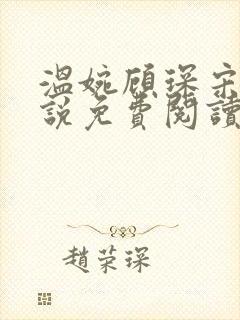 溫婉顧琛宋
說免費閱讀
趙荣琛